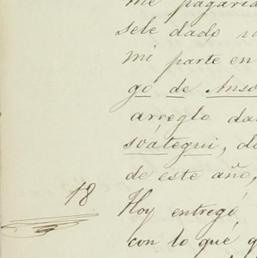 me pagaria
sele dado
mi parte en
go de Anso
arreglo da
soátegui, d
de este año,
18 Hoy entregé
con lo qué q